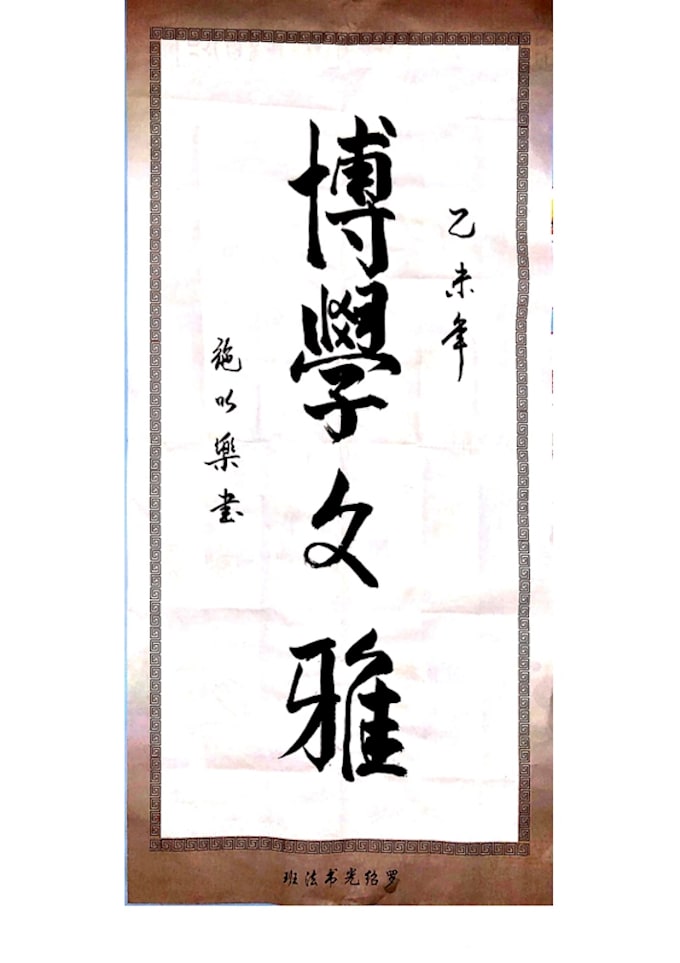 乙未年
博學文雅
施以樂書
罗绍光书法班